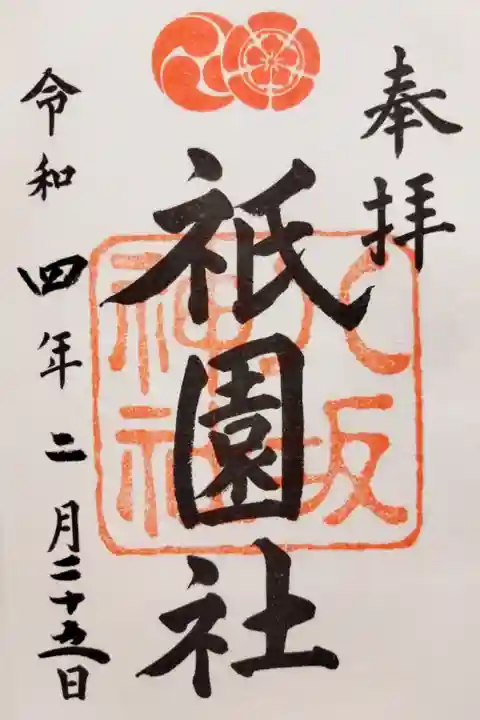 奉拝
祇園社
八坂神社
令和四年二月二十五日